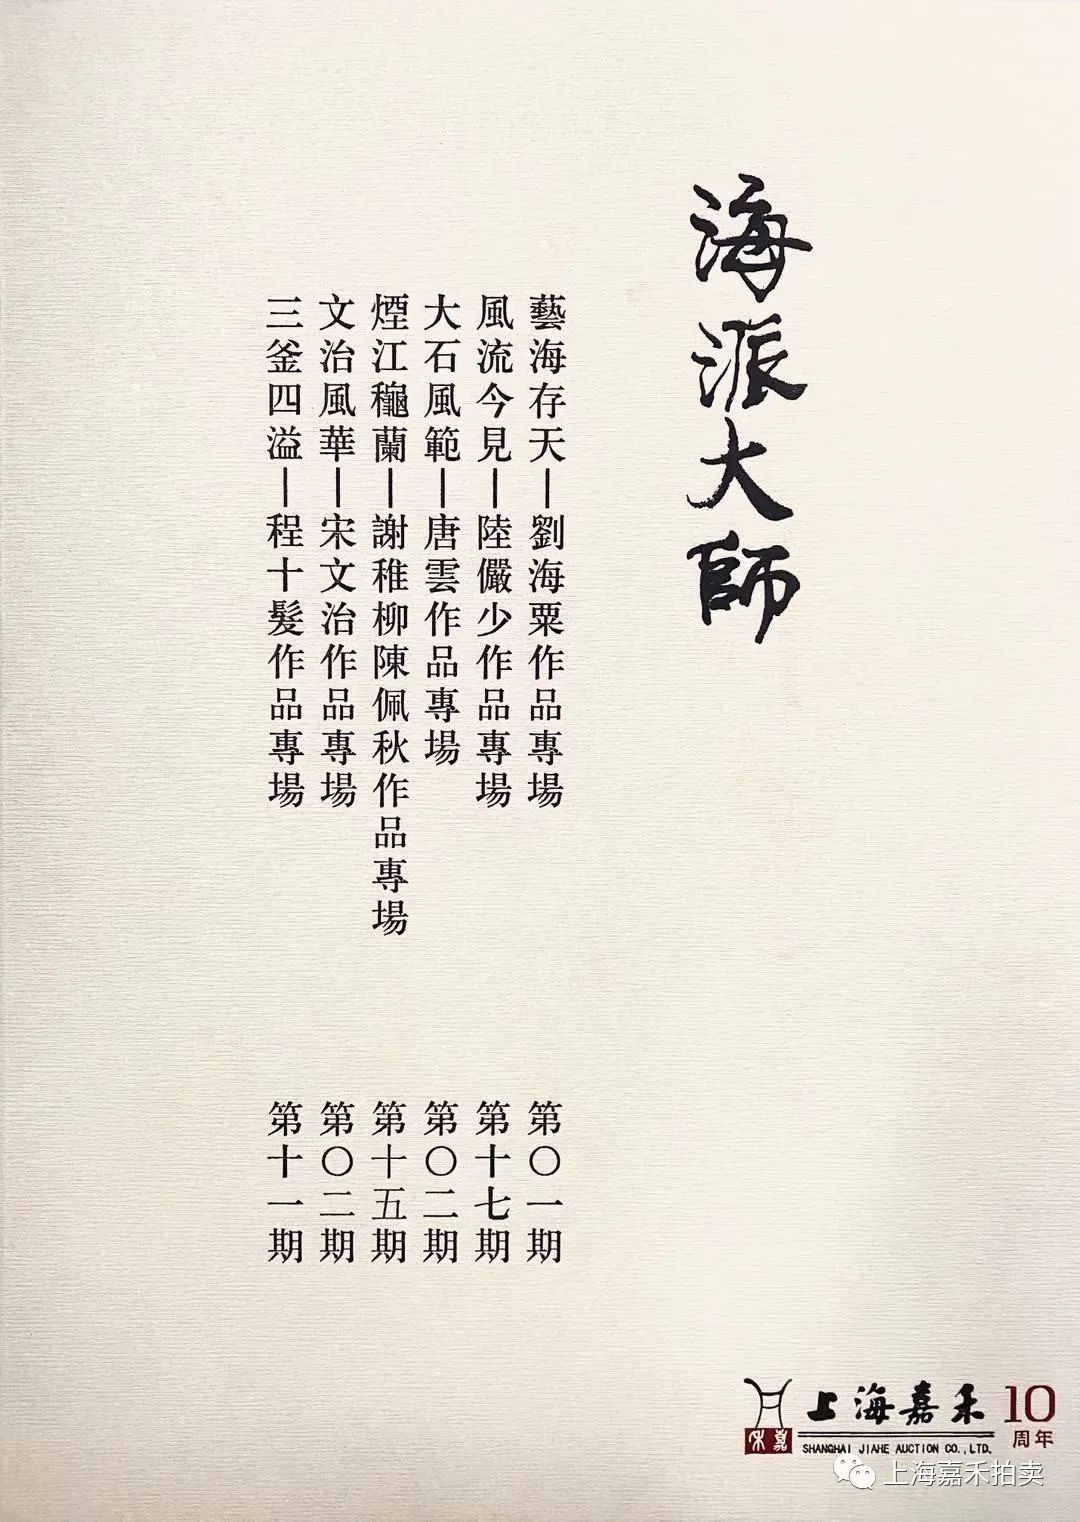 海派大師
藝海存天—劉海粟作品專場 第〇一期
風流今見—陸儼少作品專場 第十七期
大石風範—唐雲作品專場 第〇二期
煙江龝蘭—謝稚柳陳佩秋作品專場 第十五期
文治風華—宋文治作品專場 第〇二期
三釜四溢—程十髮作品專場 第十一期
嘉禾
上海嘉禾
SHANGHAI JIAHE AUCTION CO.,LTD.
10
周年
上海嘉禾拍卖